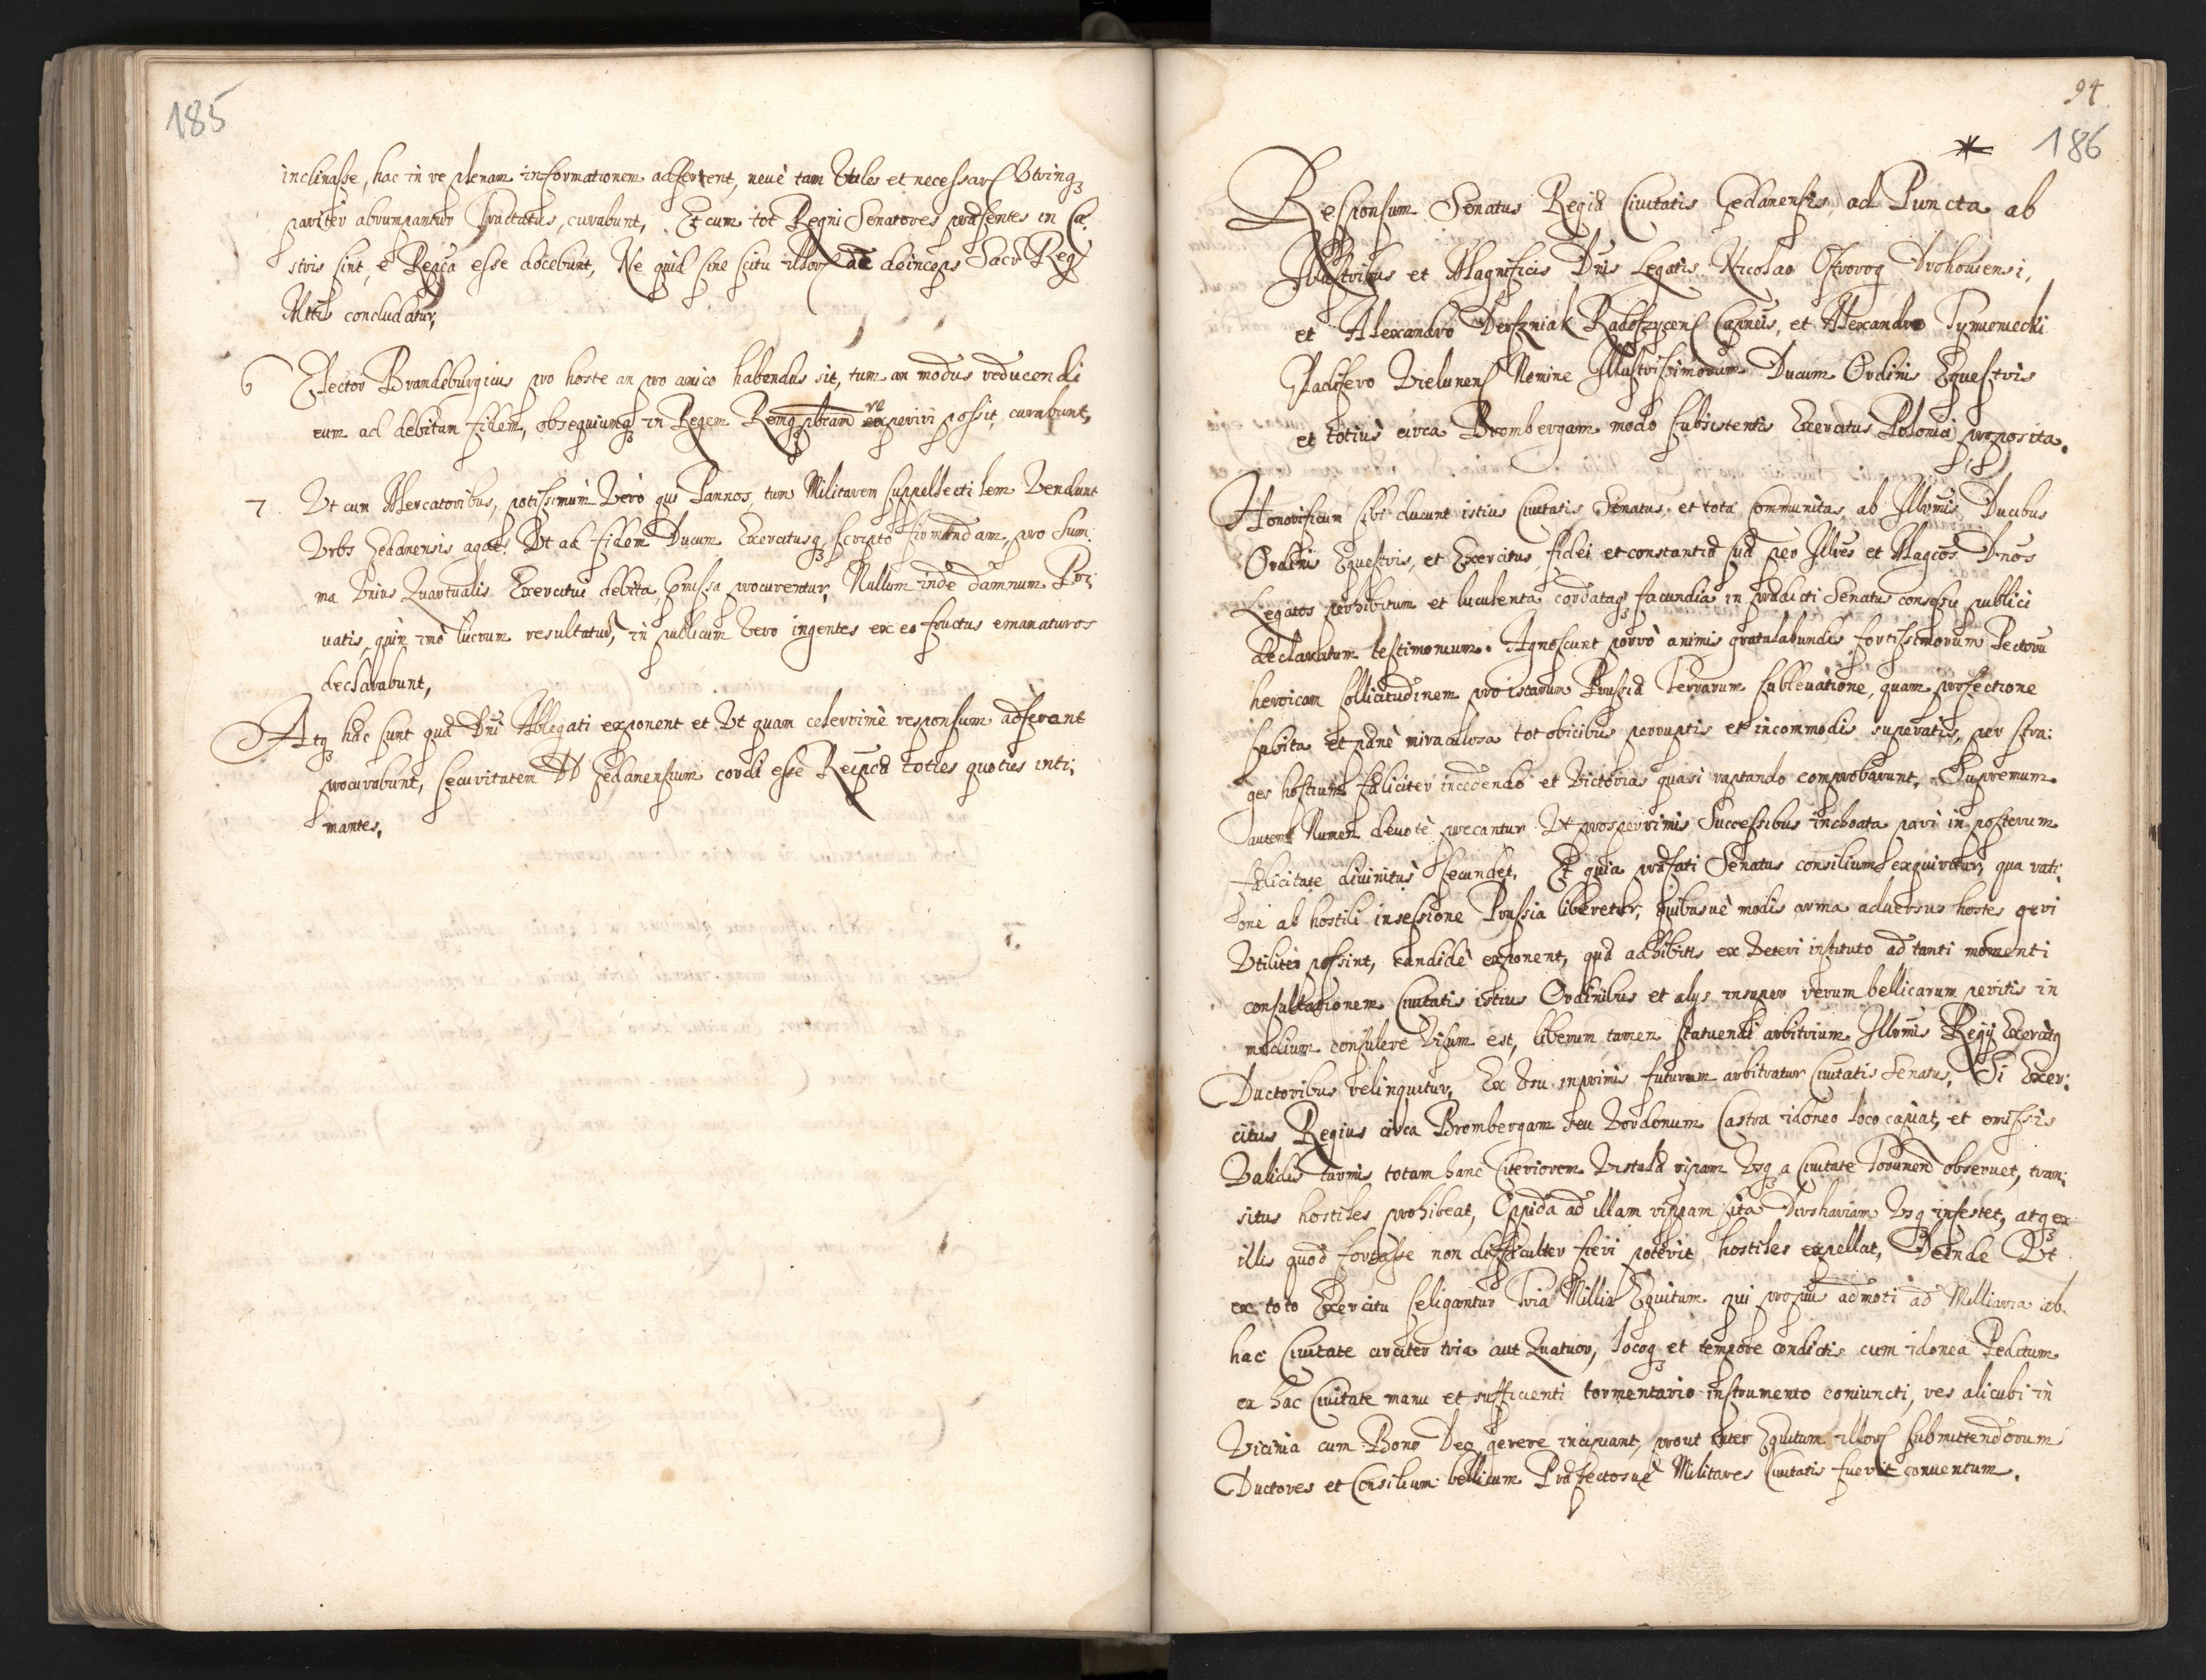 185
inclinasse, hac in re plenam informationem adferent, nevè tam Utiles et necessarς Utrinqꝫ
pariter abrumpantur Tractatus, curabunt, Et cum tot Regni Senatores præsentes in Ca:
stris sint, è Repca esse docebunt, Ne quid sine scitu illorς ac deinceps Sacr Regς
Mttis concludatur,
6 Elector Brandeburgicus pro hoste an pro amico habendus sit, tum an modus reducendi
eum ad debitam fidem, obsequiumqꝫ in Regem Remqꝫ pbcam reperiri possit, curabunt,
7. Ut cum Mercatoribus, potissimùm Verò qui Pannos, tum Militarem suppellectilem Vendunt
Urbs Gedanensis agat: Ut ad fidem Ducum Exercitusqꝫ scripto firmandam, pro Sum:
ma Unius Quartualis Exercitui debita, promissa procurentur, Nullum inde damnum Pri:
vatis, quin imò lucrum resultatur, in publicum Vero ingentes ex eo fructus emanaturos
declarabunt,
Atqꝫ hæc sunt quæ Dni Ablegati exponent et Ut quam celerrimè responsum adferant
procurabunt, securitatem DD Gedanensium cordi esse Reipcæ toties quoties inti:
mantes,
94.
186
Responsum Senatus Regiæ Civitatis Gedanensis, ad Puncta ab
Illustribus et Magnificis Dnis Legatis Nicolao Ostrorog Drohouiensi,
et Alexandro Derszniak Radoszycenς Capneis, et Alexandro Tymieniecki
Gladifero Vielunenς Nomine Illustrissimorum Ducum Ordinis Equestris
et totius circa Brombergam modo subsistentis Exercitus Polonici proposita.
Honorificum sibi ducunt istius Civitatis Senatus, et tota Communitas, ab Illrmis Ducibus
Ordinis Equestris, et Exercitus, fidei et constantiæ suæ per Illres et Magcos Dnos
Legatos perhibitum et luculenta cordataqꝫ facundia in prædicti Senatus consessu publici
declaratum testimonium. Agnoscunt porrò animis gratulabundis fortissimorum Pectorū
heroicam sollicitudinem pro istarum Prussiæ Terrarum sublevatione, quam profectione
subita et pænè miraculosa tot obicibus perruptis et incommodis superatis, per stra:
ges hostium fæliciter incedendo et Victorias quasi raptando comprobarunt, Supremum
autem Numen devotè precantur Ut prosperrimis Successibus inchoata pari in posterum
fælicitate divinitùs secundet. Et quia præfati Senatus consilium exquiritur, qua rati:
one ab hostili insessione Prussia liberetur, quibusuè modis arma adversus hostes geri
Utiliter possint, candidè exponent, quæ adhibitis ex Veteri instituto ad tanti momenti
consultationem Civitatis istius Ordinibus et alys insuper rerum bellicarum peritis in
medium consulere Visum est, liberum tamen statuendi arbitrium Illrmis Regij Exercitqꝫ
Ductoribus relinquitur, Ex Usu inprimis futurum arbitratur Civitatis Senatus, Si Exer:
citus Regius circa Brombergam seu Bordonum Castra idoneo loco capiat, et emissis
Validis turmis totam hanc Citeriorem Vistulæ ripam Usqꝫ a Civitate Torunen observet, tran:
situs hostiles prohibeat, Oppida ad illam ripam sita Dirshaviam Usqꝫ infestet, atqꝫ ex
illis quod fortasse non difficulter fieri poterit, hostiles expellat, Deinde Ut
ex toto Exercitu seligantur Tria Millia Equitum qui propius admoti ad Milliaria ab
hac Civitate circiter tria aut Quatuor, locoqꝫ et tempore condictis cum idonea Peditum
ex hac Civitate manu et sufficienti tormentario instrumento coniuncti, res alicubi in
Vicinia cum Bono Deo gerere incipiant, prout inter Equitum illorς submittendorum
Ductores et Consilium bellicum Præfectosuè Militares Civitatis fuerit conventum.